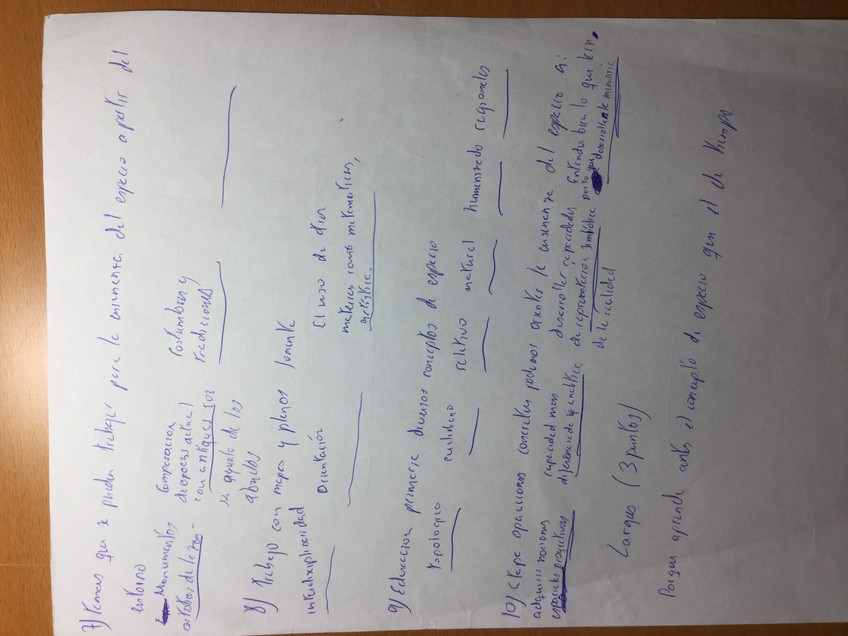 7) Temas que se pueden trabajar para la enseñanza del espacio a partir del
entorno
Monumentos
artísticos de la zona
Comparación
de época actual
con antigua por
ej aquella de los
abuelos
Costumbres y
tradiciones
8) Trabajo con mapas y planos fomenta
interdisciplinariedad
Orientación
El uso de otras
materias como matemáticas,
artística.
9) Educación primaria diversos conceptos de espacio
topológico euclidiano relativo natural humanizado regionales
10) Etapa operaciones concretas podemos orientar la enseñanza del espacio a:
adquirir nociones
espaciales proyectivas
capacidad mas
diferenciada y analítica
desarrollar capacidades
de representación simbólica
de la realidad
Entender bien lo que leen,
para que
desarrollen la memoria
Largas (3 puntos)
Porque aprende antes el concepto de espacio que el de tiempo